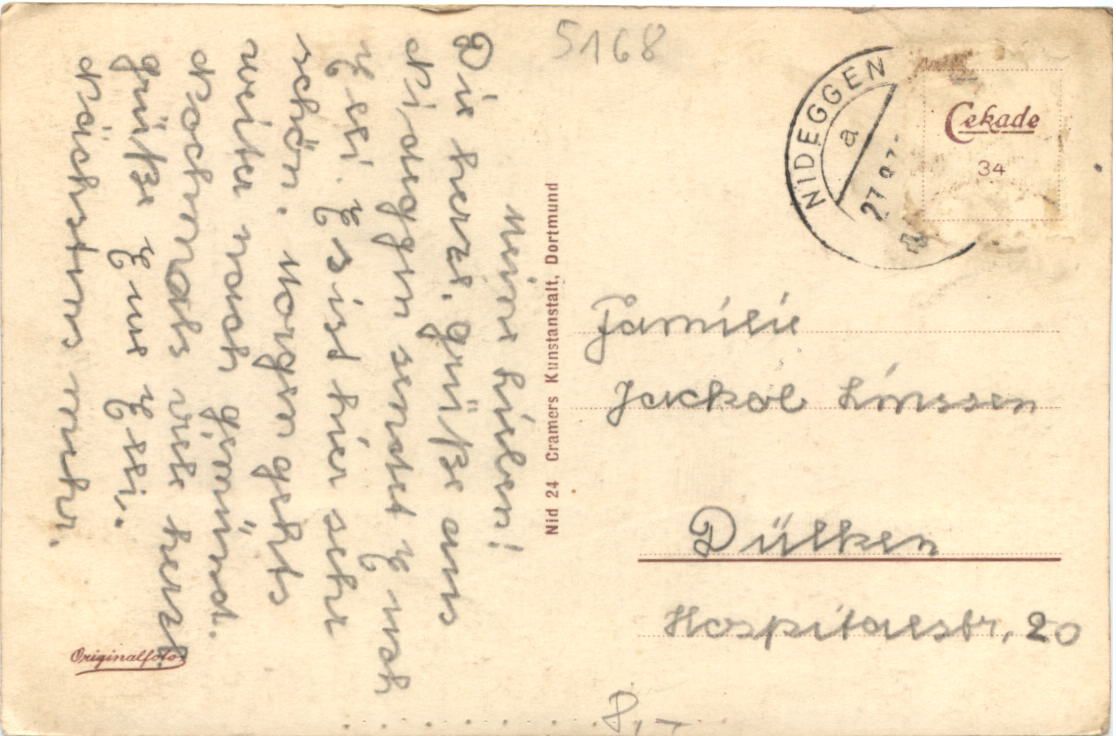 Meine Lieben!
Die herzl. Grüße aus
Nideggen sendet Euch
Elli. Es ist hier sehr
schön. Morgen gehts
weiter nach Gemünd.
Nochmals viele herzl.
Grüße Eure Elli.
Nächstens mehr.
Originalfoto
Nid 24 Cramers Kunstanstalt, Dortmund
5168
NIDEGGEN
a
Cekade
34
Familie
Jackob Linssen
Dülken
Hospitalstr. 20
8,-